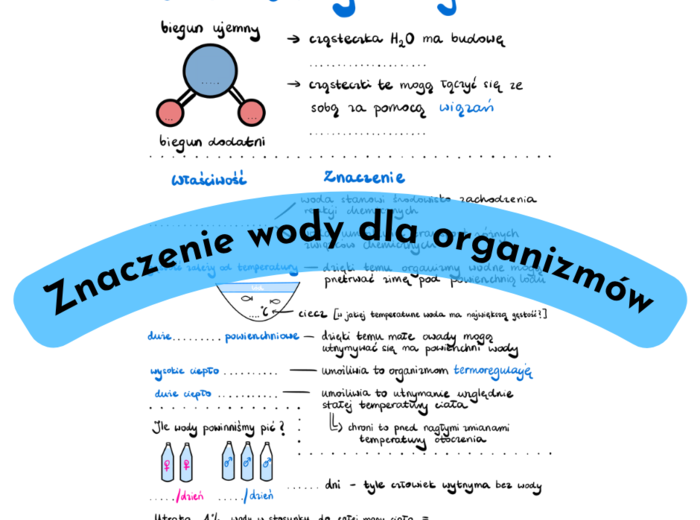 biegun ujemny
→ cząsteczka H₂O ma budowę
..........................
→ cząsteczki te mogą łączyć się ze
sobą za pomocą wiązań
..........................
biegun dodatni
Właściwość Znaczenie
woda stanowi środowisko zachodzenia
reakcji chemicznych
różnych
związków chemicznych
Znaczenie wody dla organizmów
zależy od temperatury — dzięki temu organizmy wodne mogą
przetrwać zimę pod powierzchnią lodu
lód
....°C
ciecz [w jakiej temperaturze woda ma największą gęstość?]
duże......... powierzchniowe — dzięki temu małe owady mogą
utrzymywać się na powierzchni wody
wysokie ciepło .......... — umożliwia to organizmom termoregulację
duże ciepło .......... — umożliwia to utrzymanie względnie
stałej temperatury ciała
↳ chroni to przed nagłymi zmianami
temperatury otoczenia
Ile wody powinniśmy pić?
♀ ♀ ♂ ♂ ♂
...../dzień ...../dzień
...... dni - tyle człowiek wytrzyma bez wody
Utrata 1% wody w stosunku do całej masy ciała =